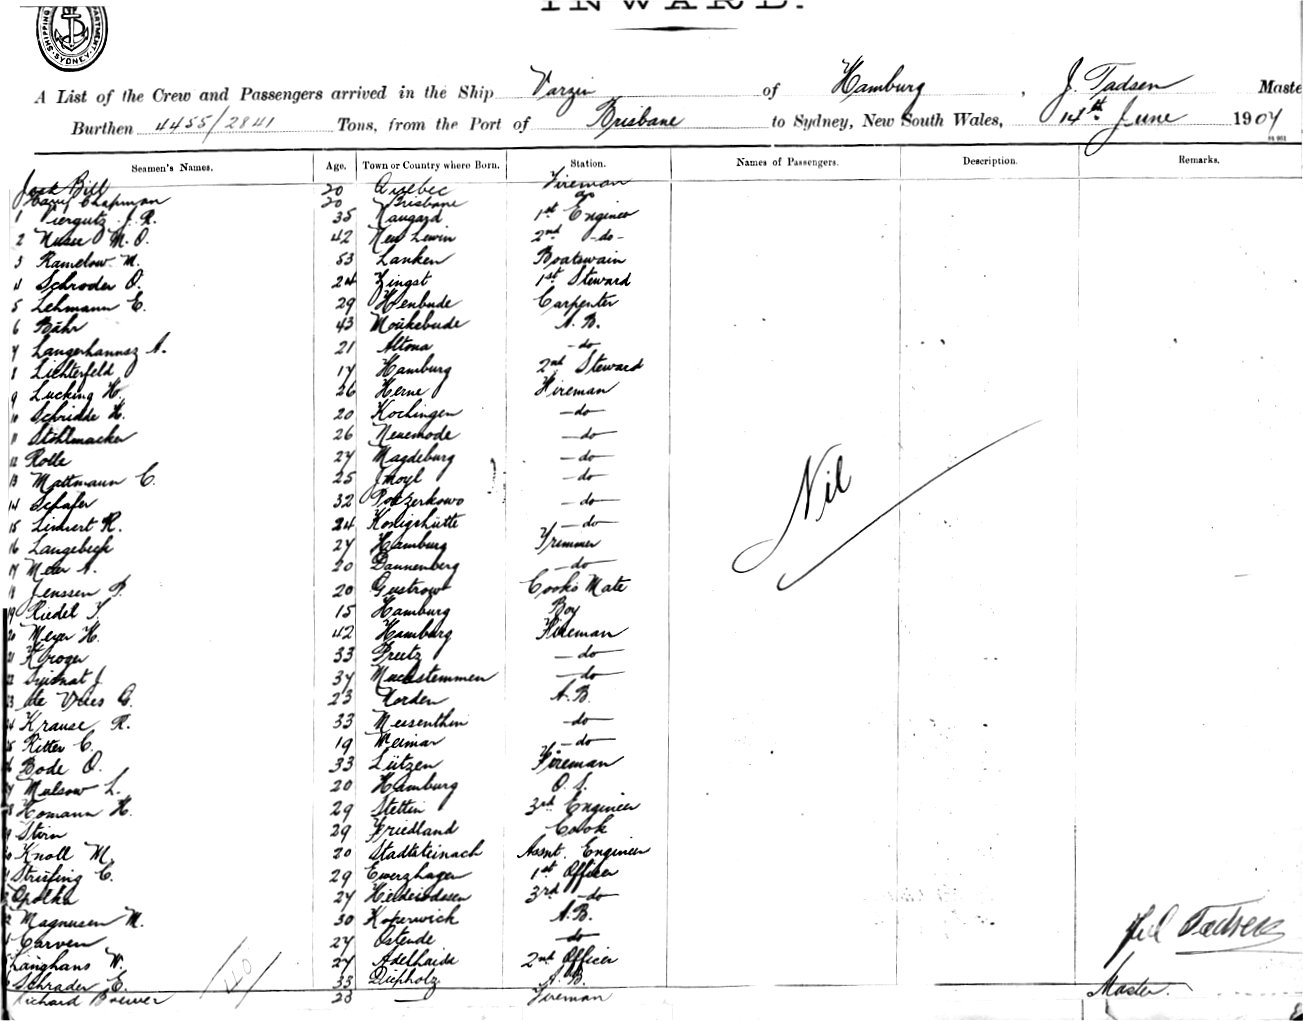 INWARD.
SHIPPING DEPARTMENT. SYDNEY
A List of the Crew and Passengers arrived in the Ship Varzin of Hamburg, J. Tadsen Maste
Burthen 4455/2841 Tons, from the Port of Brisbane to Sydney, New South Wales, 14th June 1907
Seamen's Names. Age. Town or Country where Born. Station. Names of Passengers. Description. Remarks.
Jack Bill 20 Quebec Fireman
Harry Chapman 20 Brisbane do
1 Viergutz J. R. 35 Naugard 1st Engineer
2 M. O. 42 New Lewin 2nd -do-
3 Ramelow M. 53 Lanken Boatswain
4 Schroder O. 24 Zingst 1st Steward
5 Lehmann E. 29 Carpenter
6 Bähr 43 A. B.
7 Langerhannsz A. 21 Altona -do-
8 Lichterfeld 17 Hamburg 2nd Steward
9 Lucking H. 26 Herne Fireman
10 Schridde H. 20 Kochingen -do-
11 Stöhlmacker 26 Neuemode -do-
12 Rolle 27 Magdeburg -do-
13 Mattmann C. 25 -do-
14 Schafer 32 -do-
15 R. 24 Königshütte -do-
16 Langebeck 27 Hamburg Trimmer
17 A. 20 Dannenberg -do-
18 Jenssen P. 20 Gustrow Cooks Mate
19 Riedel F. 15 Hamburg Boy
20 Meyer H. 42 Hamburg Fireman
21 Kroger 33 Preetz -do-
22 J. 37 -do-
23 de Vries G. 23 Norden A. B.
24 Krause R. 33 Meisenthin -do-
25 Ritter C. 19 Weimar -do-
26 Bode O. 33 Lützen Fireman
27 Mulsow L. 20 Hamburg O. S.
28 Homann H. 29 Stettin 3rd Engineer
29 29 Friedland Cook
30 Knoll M. 20 Stadtsteinach Assnt. Engineer
E. 29 1st Officer
Opolka 27 3rd -do-
Magnusen M. 30 Koperwick A. B.
Carven 27 Ostende -do-
Langhans W. 27 Adelhaide 2nd Officer
Schrader E. 33 Diepholz A. B.
Richard Brewer 23 — Fireman
/40/
Nil
Tadsen
Master.